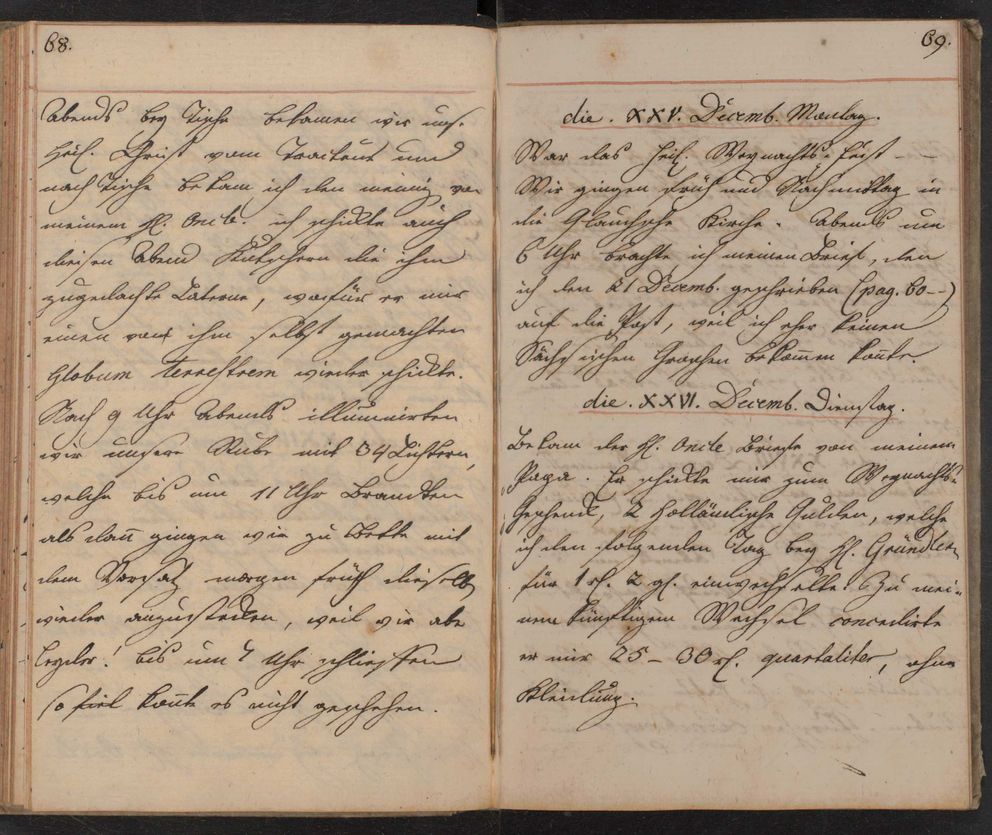 68.
Abends bey Tische bekamen wir uns.
Heil. Christ vom Tracteur und
nach Tische bekam ich den meinig von
meinem H. Oncle. ich schickte auch
diesen Abend Kutschern die ihm
zugedachte Laterne, wofür er mir
einen von ihm selbst gemachten
Globum terrestrem wieder schickte.
Nach 9 Uhr Abends illuminirten
wir unsere Stube mit 34 Lichtern,
welche bis um 11 Uhr brandten
als dan gingen wir zu Bette mit
dem Vorsatz morgen früh dieselb
wieder anzustecken, weil wir abe
leyder! bis um 7 Uhr schliessen
so fiel konte es nicht geschehen.
69.
die. XXV. Decemb. Montag.
War das Heil. Weynachts-Fest - -
Wir gingen Früh und Nachmittag in
die Glauchsche Kirche. Abends um
6 Uhr brachte ich meinen Brief, den
ich den 21 Decemb. geschrieben (pag. 60 --)
auf die Post, weil ich eher keinen
Sächsischen Groschen bekommen konte.
die. XXVI. Decemb. Dienstag.
Bekam der H. Oncle Briefe von meinem
Papa. Er schickte mir zum Weynachts-
Geschenk, 2 Holländische Gulden, welche
ich den folgenden Tag bey H. Gründler
für 1 rh. 2 gl. einwechselte. Zu mei-
nem künftigem Wechsel concedirte
er mir 25 - 30 rh. quartaliter, ohne
Kleidung.